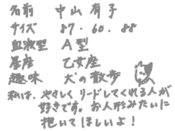 名前 中山 有子
サイズ 87.60.88
血液型 A型
星座 乙女座
趣味 犬の散歩
私は、やさしくリードしてくれる人が
好きです。お人形みたいに
抱いてほしいよ!